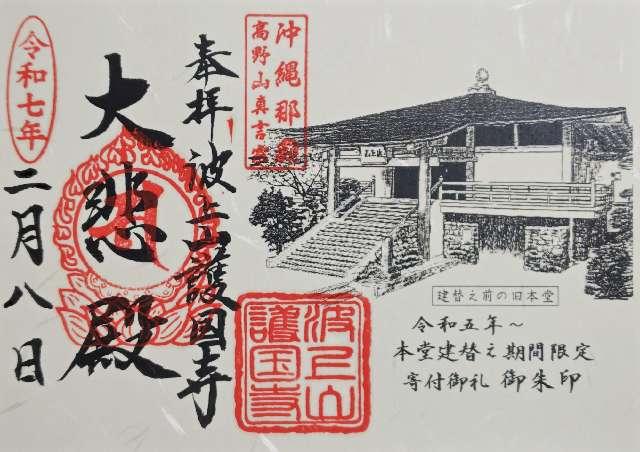 沖縄那覇
高野山真言宗
奉拝 波上山護国寺
大悲殿
令和七年
二月八日
波上山
護国寺
建替え前の旧本堂
令和五年～
本堂建替え期間限定
寄付御礼 御朱印